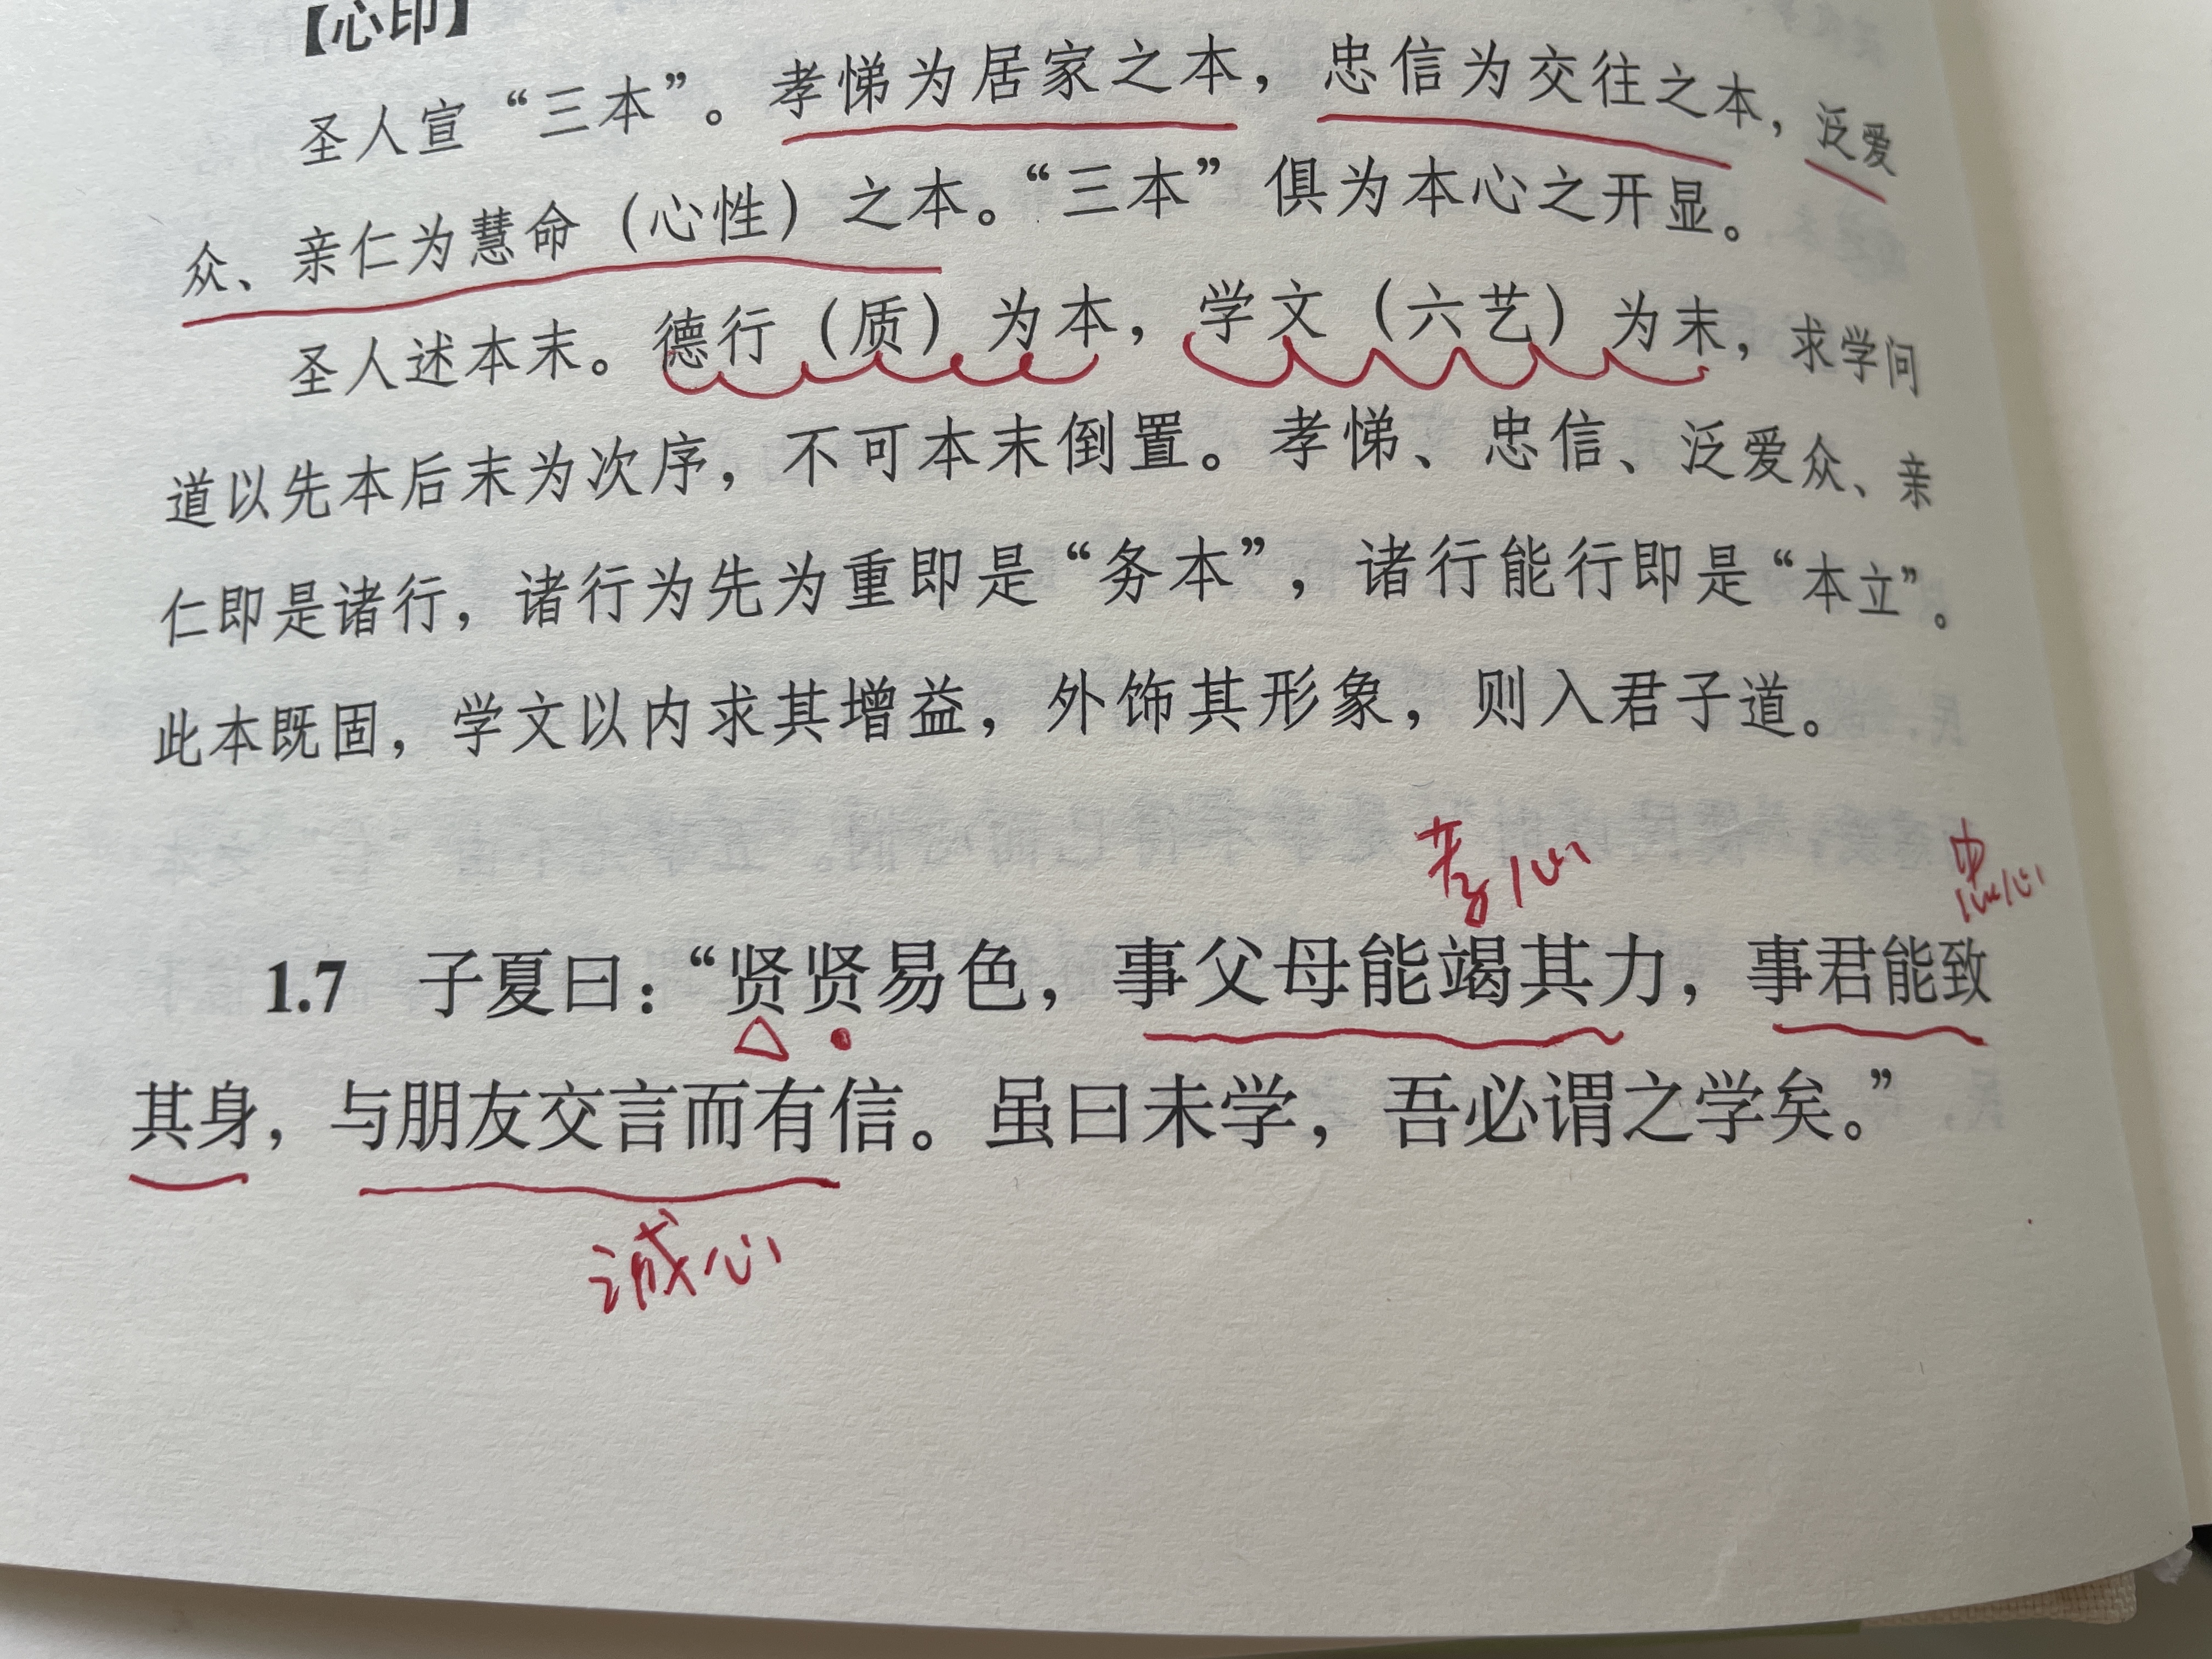 【心印】
圣人宣“三本”。孝悌为居家之本，忠信为交往之本，泛爱
众、亲仁为慧命（心性）之本。“三本”俱为本心之开显。
圣人述本末。德行（质）为本，学文（六艺）为末，求学问
道以先本后末为次序，不可本末倒置。孝悌、忠信、泛爱众、亲
仁即是诸行，诸行为先为重即是“务本”，诸行能行即是“本立”。
此本既固，学文以内求其增益，外饰其形象，则入君子道。
孝心
忠心
1.7 子夏曰：“贤贤易色，事父母能竭其力，事君能致
其身，与朋友交言而有信。虽曰未学，吾必谓之学矣。”
诚心